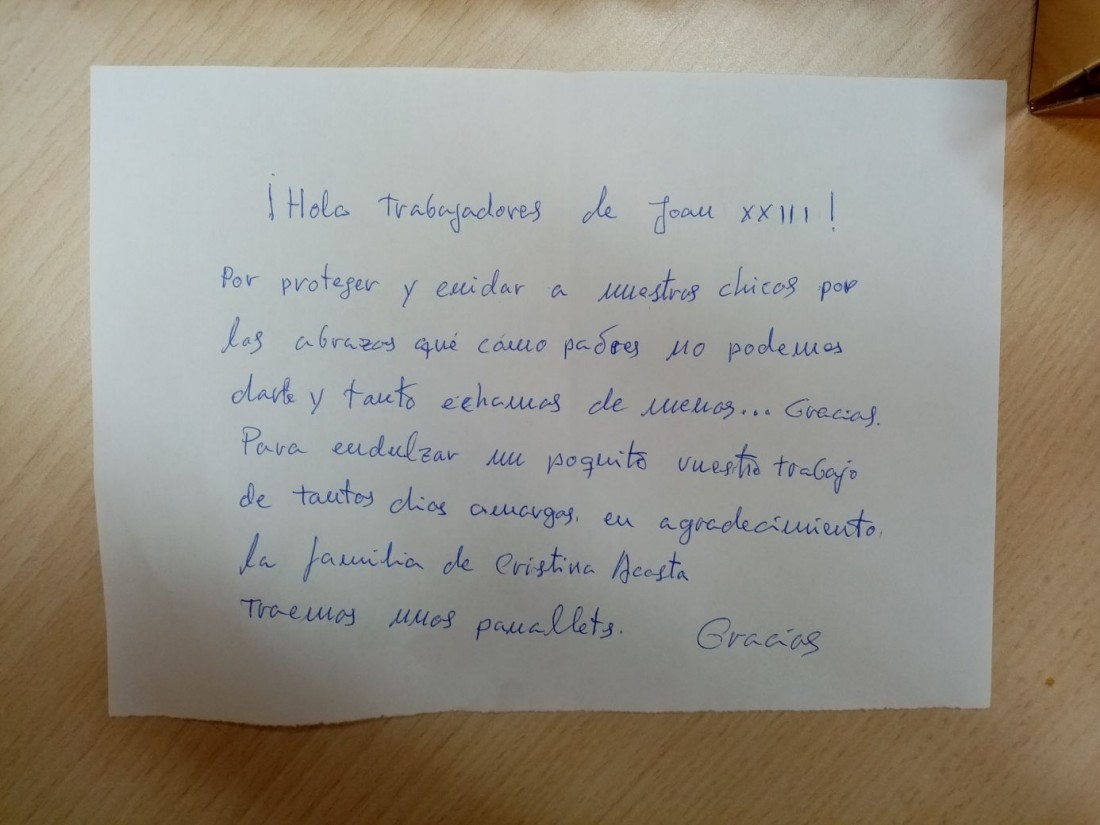 ¡Hola trabajadores de Joan XXIII!
Por proteger y cuidar a nuestros chicos por
los abrazos qué cómo padres no podemos
darle y tanto echamos de menos... Gracias.
Para endulzar un poquito vuestro trabajo
de tantos dias amargos, en agradecimiento.
la familia de Cristina Acosta
Traemos unos panallets. Gracias